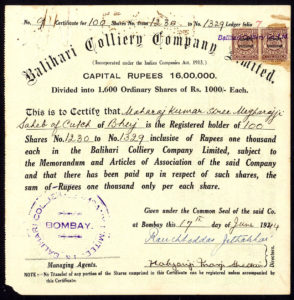 No. 9 Certificate for 100 Shares No. from 1230 to 1329 Ledger folio 7
Balihari Colliery Company Limited.
(Incorporated under the Indian Companies Act, 1913.)
CAPITAL RUPEES 16,00,000.
Divided into 1,600 Ordinary Shares of Rs. 1000/- Each.
This is to Certify that Maharaj Kumar Shree Meghrajji
Saheb of Cutch of Bhuj is the Registered holder of 100
Shares No. 1230 to 1329 inclusive of Rupees one thousand
each in the Balihari Colliery Company Limited, subject to
the Memorandum and Articles of Association of the said Company
and that there has been paid up in respect of such shares, the
sum of Rupees one thousand only per each share.
Given under the Common Seal of the said Co.
at Bombay this 17th day of June 1924
BALIHARI COLLIERY COMPANY LIMITED
BOMBAY.
Ranchhoddas Jethabhai
Directors.
Managing Agents.
NOTE:- No Transfer of any portion of the Shares comprised in this Certificate can be registered unless accompanied
by this Certificate.